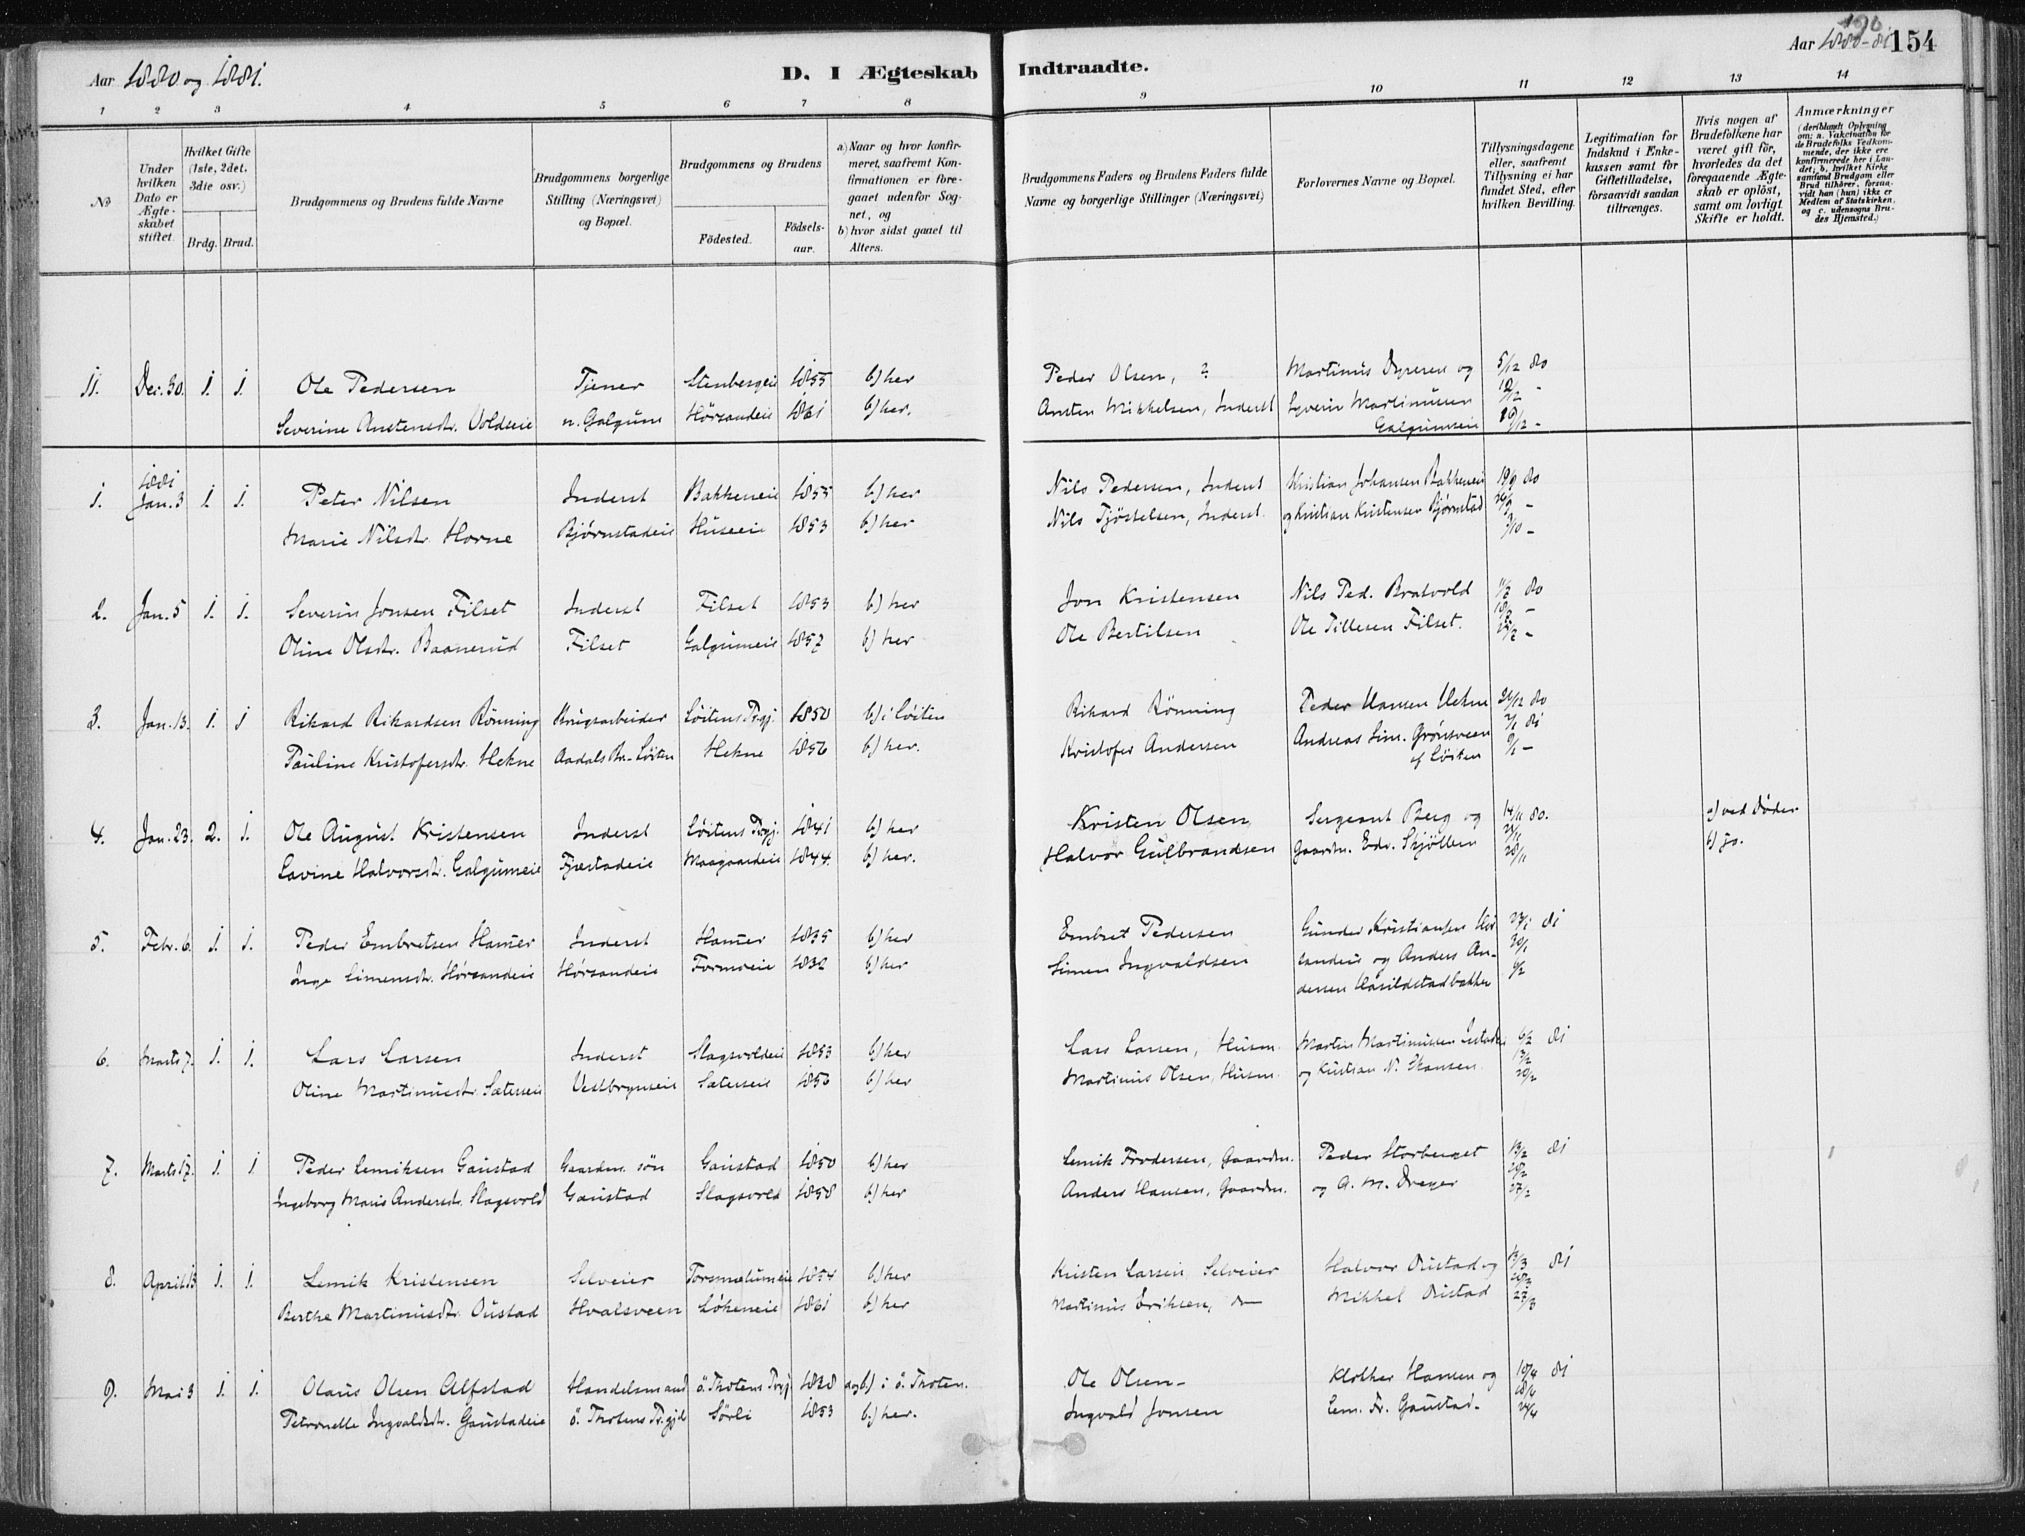 Aar 1880 og 1881.
D. I Ægteskab Indtraadte.
Aar 1880-81 154
1 2 3 4 5 6 7 8 9 10 11 12 13 14
No
Under hvilken Dato er Ægteskabet stiftet.
Hvilket Gifte (1ste, 2det, 3die osv.)
Brdg. Brud.
Brudgommens og Brudens fulde Navne
Brudgommens borgerlige Stilling (Næringsvei) og Bopæl.
Brudgommens og Brudens
Fødested. Fødselsaar.
a) Naar og hvor konfirmeret, saafremt Konfirmationen er foregaaet udenfor Sognet, og
b) hvor sidst gaaet til Alters.
Brudgommens Faders og Brudens Faders fulde Navne og borgerlige Stillinger (Næringsvei)
Forlovernes Navne og Bopæl.
Tillysningsdagene eller, saafremt Tillysning ei har fundet Sted, efter hvilken Bevilling.
Legitimation for Indskud i Enkekassen samt for Giftetilladelse, forsaavidt saadan tiltrænges.
Hvis nogen af Brudefolkene har været gift før, hvorledes da det foregaaende Ægteskab er opløst, samt om lovligt Skifte er holdt.
Anmærkninger (deriblandt Oplysning om: a. Vakcination for de Brudefolks Vedkommende, der ikke ere konfirmerede her i Landet; b. hvilket Kirkesamfund Brudgom eller Brud tilhører, forsaavidt han (hun) ikke er Medlem af Statskirken, og c. udensogns Brudes Hjemsted.)
11. Dec. 30. 1. 1. Ole Pedersen Tjener Stenbergeie 1855 b) her Peder Olsen, ? Martinus Dyreren og 5/12 80
Severine Anstensdr. Voldseie n. Galgum Hørsandeie 1861 b) her. Ansten Mikkelsen, Inderst Syverin Martinusen 12/12 -
Galgumseie 19/12 -
1881
1. Jan. 3 1. 1. Peter Nilsen Inderst Bakkeneie 1855 b) her Nils Pedersen, Inderst Kristian Johansen Bakkeneie 19/9 80
Marie Nilsdr. Horne Bjørnstadeie Huseeie 1853 b) her Nils Tjøstelsen, Inderst og Kristian Kristensen Bjørnstad 26/9 -
3/10 -
2. Jan. 5 1. 1. Severin Jonsen Filset Inderst Filset 1853 b) her Jon Kristensen Nils Ped. Bratvold 11/7 80
Oline Olsdr. Baanerud Filset Galgumeie 1857 b) her Ole Bertilsen Ole Tillesen Filset. 18/7 -
25/7 -
3. Jan. 13. 1. 1 Rikard Rikardsen Rønning Brugsarbeider Løitens Prgj. 1850 b) i Løiten Rikard Rønning Peder Hansen Hekne 26/12 80
Pauline Kristofersdr. Hekne Aadals Br. Løiten Hekne 1856 b) her. Kristofer Andersen Andreas Sim. Grønsveen 2/1 81
af Løiten 9/1 -
4. Jan. 23. 2. 1. Ole August Kristensen Inderst Løitens Prgj. 1841 b) her Kristen Olsen Sergeant Berg og 14/11 80. a) ved Døden
Lavine Halvorsdr. Galgumeie Fjæstadeie Maagaardeie 1844. b) her. Halvor Gulbrandsen Gaardm. Edv. Skjöllen 21/11 b) jo.
28/11
5. Febr. 6. 1. 1. Peder Embretsen Hamer Inderst Hamer 1835 b) her Embret Pedersen Gunder Kristiansen Hør 23/1 81
Inge Simensdr. Hørsandeie Hørsandeie Formoeie 1832 b) her Simen Ingvaldsen sandeie og Anders An- 30/1
dersen Havildstadbakken 6/2
6. Marts 7. 1. 1. Lars Larsen Inderst Slagsvoldeie 1853 b) her Lars Larsen, Husm. Martin Martinussen 6/2 81
Oline Martinusdr. Sæterseie Vestbryneie Sæterseie 1850 b) her Martinus Olsen, Husm. og Kristian N. Hansen 13/2
20/2
7. Marts 17. 1. 1 Peder Lemiksen Gaustad Gaardm. søn Gaustad 1850 b) her Lemik Frodersen, Gaardm. Peder Storberget 13/2 81
Ingeborg Marie Andersdr. Slagsvold Gaustad Slagsvold 1858 b) her Anders Hansen, Gaardm. og A. M. Dreyer 20/2
27/2
8. April 13 1. 1. Lemik Kristensen Selveier Torsmætumeie 1854 b) her Kristen Larsen Selveier Halvor Oustad og 13/3 81
Berthe Martinusdr. Oustad Hvalsveen Løkeneie 1861 b) her Martinus Eriksen, do Mikkel Oustad 20/3
27/3
9. Mai 3 1. 1. Olaus Olsen Alfstad Handelsmand ö. Thotens Prgj. 1828 a og b) i ö. Thoten. Ole Olsen - Klokker Hansen og 10/4 81
Petronelle Ingvaldsdr. Gaustadeie ö. Thotens Prgjd Sörli 1853 b) her. Ingvald Jonsen Lem. Fr. Gaustad. 18/4
24/4